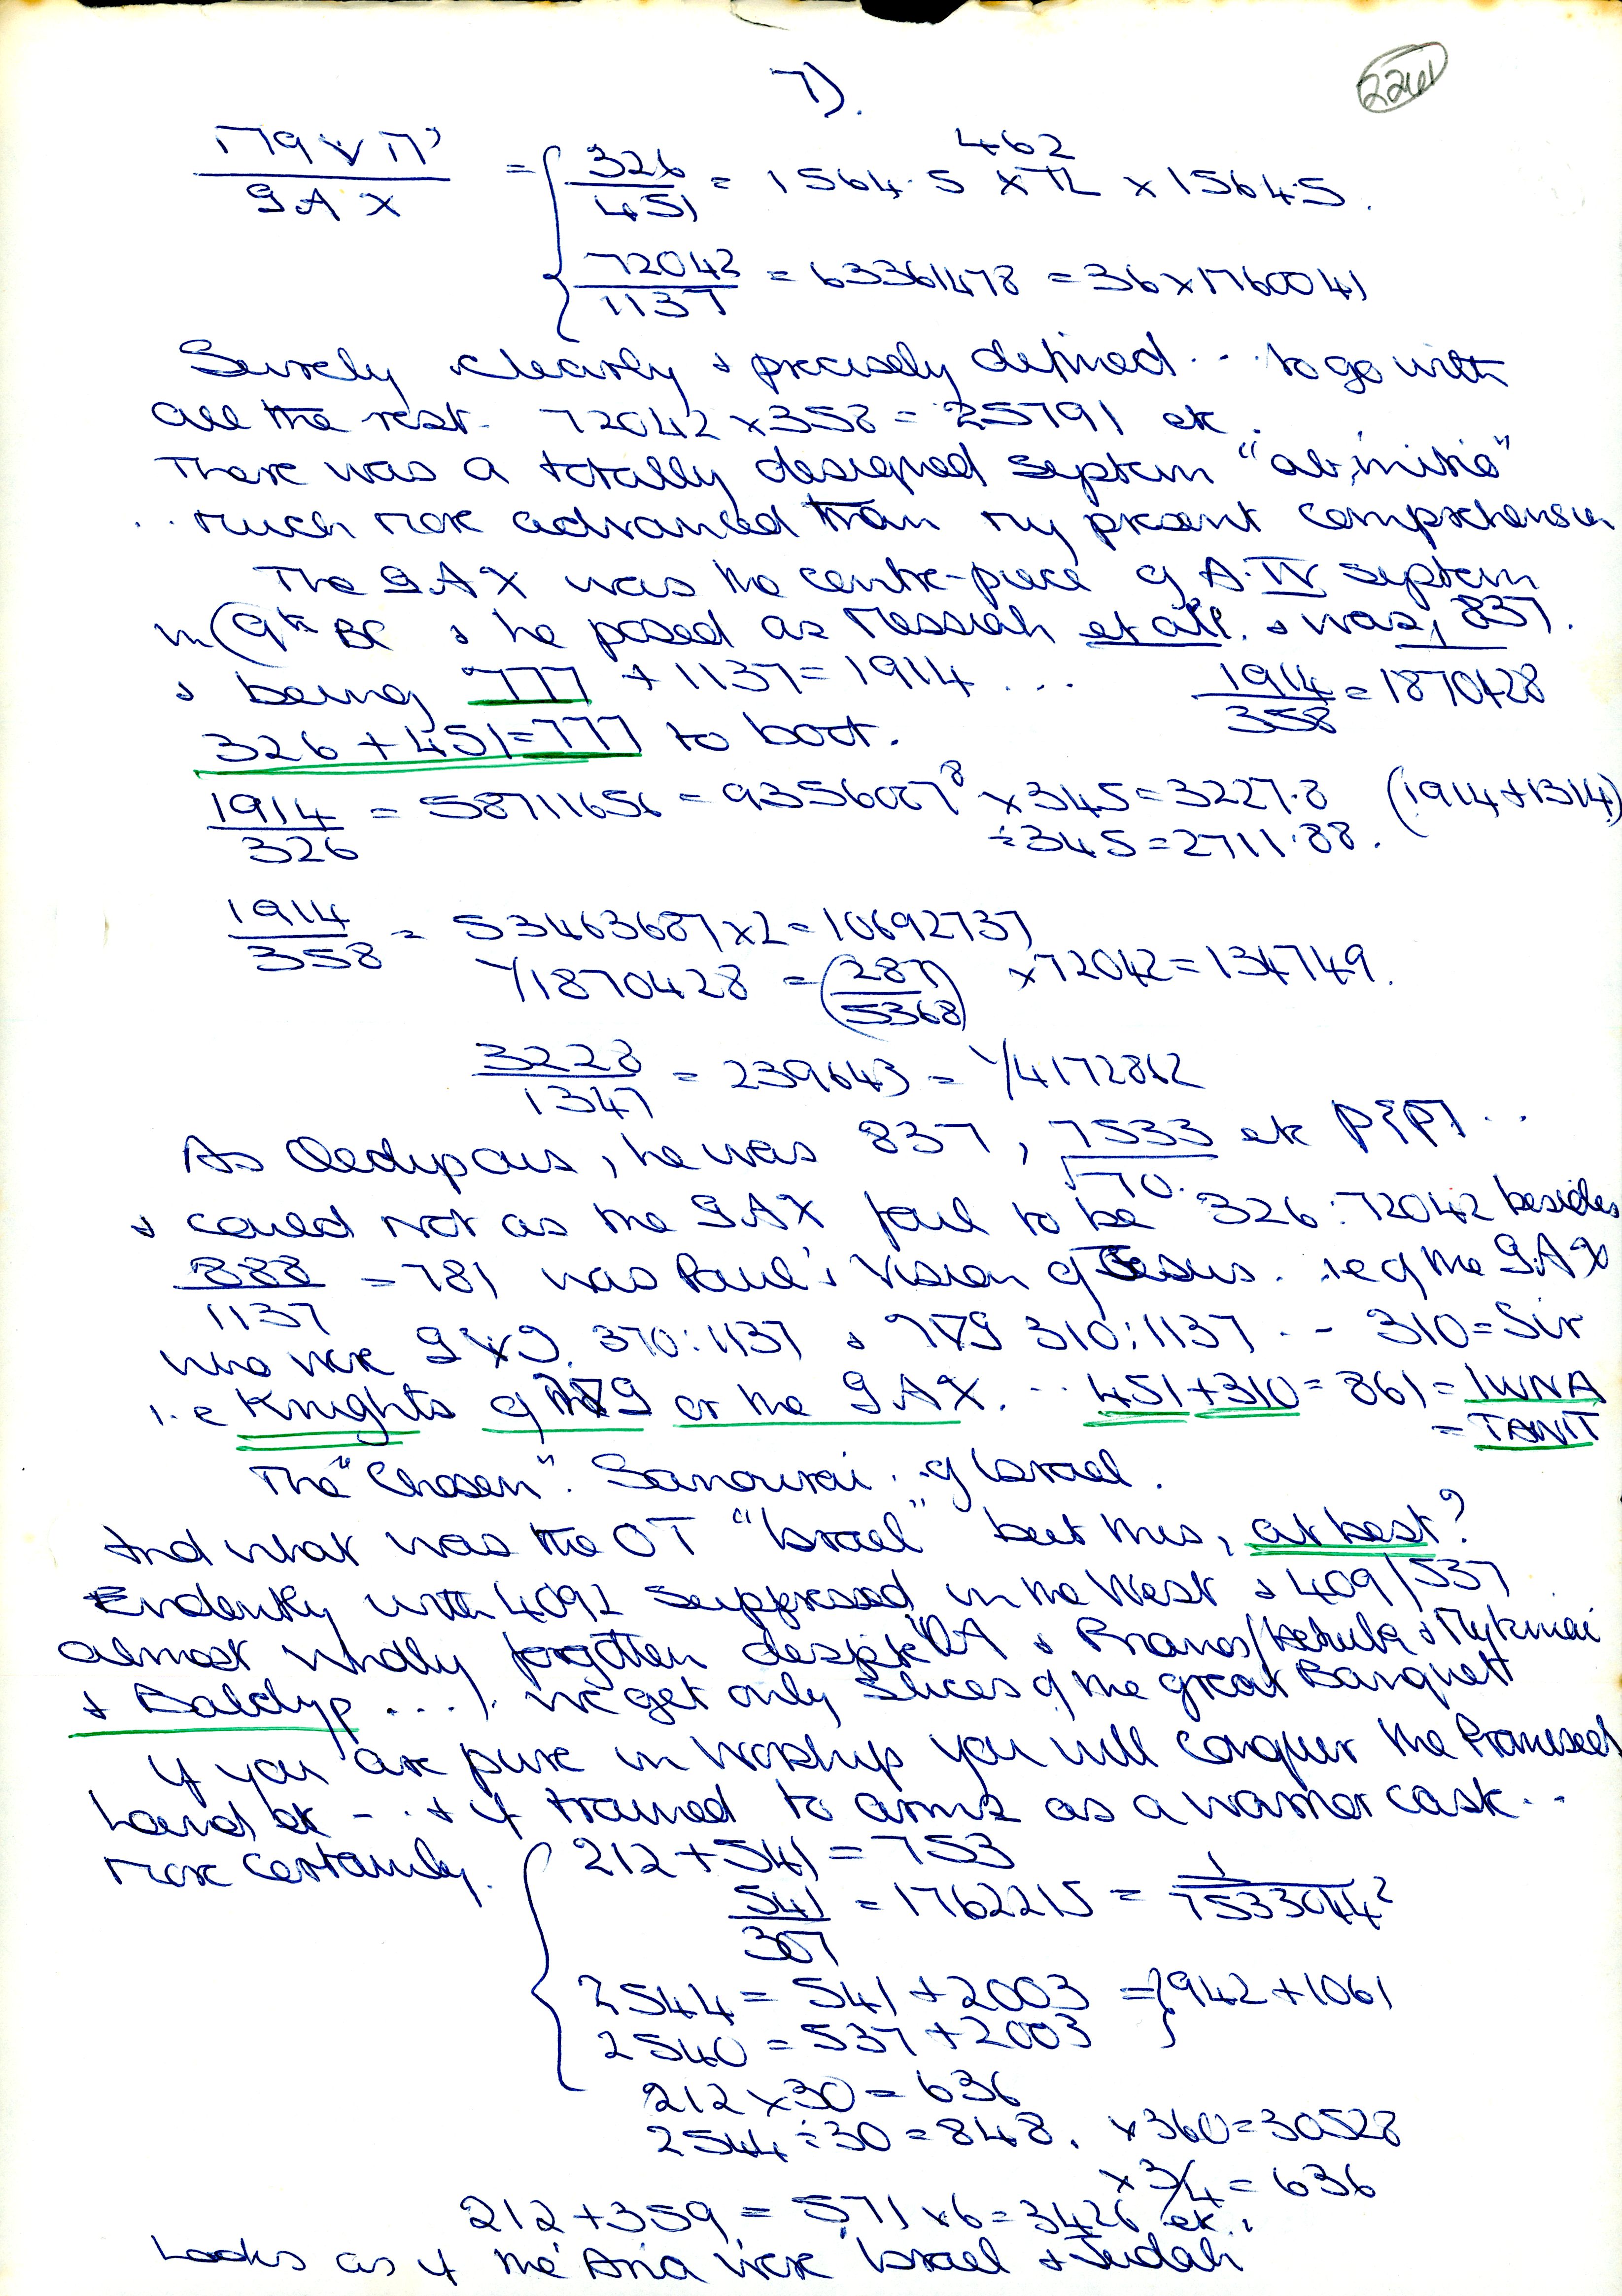 7).
2241
462
326/451 = 1564.5 × π × 1564.5.
ꓨAX
72042/1137 = 63361478 = 36×1760041
Surely clearly & precisely defined... to go with
all the rest. 72042 × 358 = 25791 etc.
There was a totally designed system "ab initio"
.. much more advanced than my present comprehension
The ꓨAX was the centre-piece of A.IV system
in (9th BC & he posed as Messiah et al. & was, 837.
& being 777 + 1137 = 1914 ... 1914/358 = 1870428
326 + 451 = 777 to boot.
1914/326 = 58711656 = 9356007⁸ × 345 = 3227.8 (1914+1314)
÷345 = 2711.88.
1914/358 = 53463687 × 2 = 10692737
1/1870428 = (287/5368) × 72042 = 134749.
3228/1347 = 239643 = 1/4172862
As Oedipous, he was 837, 7533/√70. etc ...
& could not as the ꓨAX fail to be 326:72042 besides
888/1137 = 781 was Paul's Vision of Jesus. i.e of the ꓨAX
who were 370:1137 & 310:1137 .. 310 = Sir
i.e Knights of the or the ꓨAX. .. 451+310 = 861 = IWNA
= TANIT
The "Chosen". Samourai of Israel.
And what was the OT "Israel" but this, at best?
Evidently with 4092 suppressed in the West & 409/537
almost wholly forgotten despite & &
& Baldyp ...). we get only slices of the great Banquet
If you are pure in Worship you will conquer the Promised
Land etc - .. & if trained to arms as a warrior caste ..
more certainly. 212 + 541 = 753
541/307 = 1762215 = 1/7533044²
2544 = 541 + 2003 = 942 + 1061
2540 = 537 + 2003
212 × 30 = 636
2544 ÷ 30 = 848. × 360 = 30528
× 3/4 = 636
212 + 359 = 571 × 6 = 3426 etc.
Looks as if the Aria were Israel & Judah